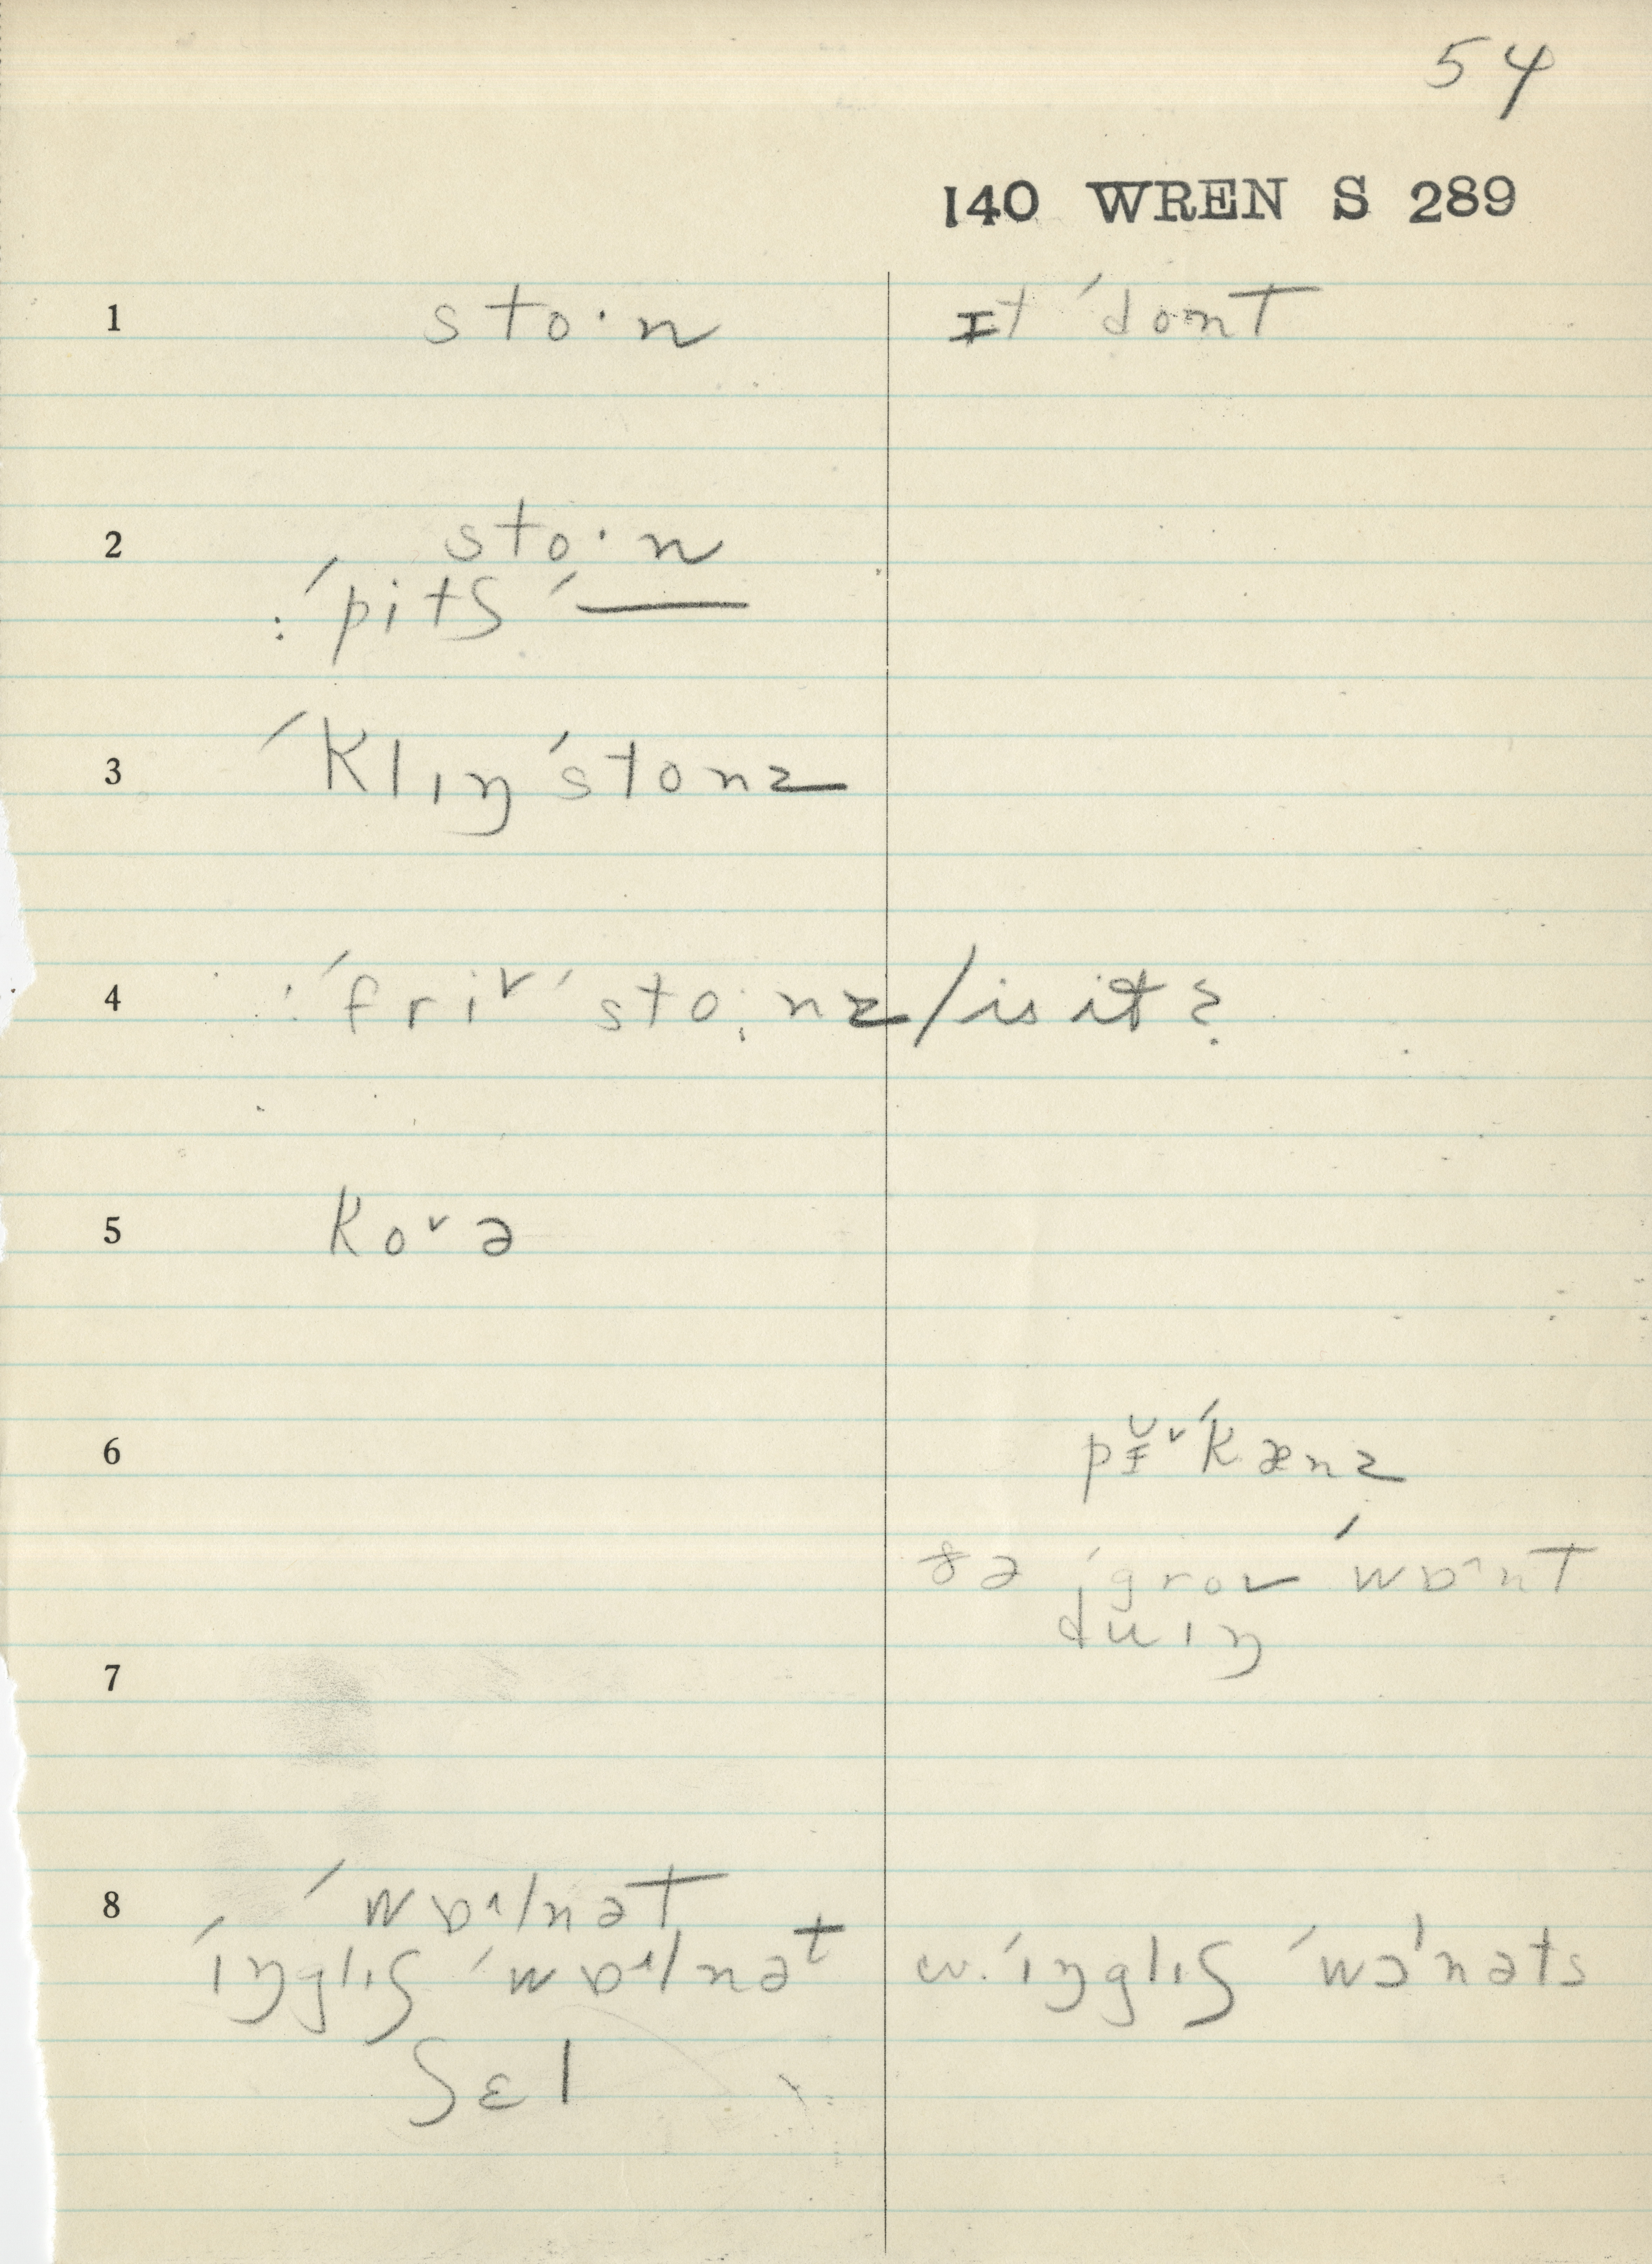 54
140 WREN S 289
1 sto·n ɪt ˈdont
2 sto·n
: ˈpitʃ ˈ—
3 ˈklɪŋˈstonz
4 : ˈfri˅ˈsto·nz / is it?
5 ko˅ə
6 ˈkænz
ðə ˈgrov ˈwɒ^nt
duɪŋ
7
8 ˈwɒ^lnət
ˈɪŋglɪʃ ˈwɒ^lnət cv. ˈɪŋglɪʃ ˈwɔˈnəts
ʃɛl